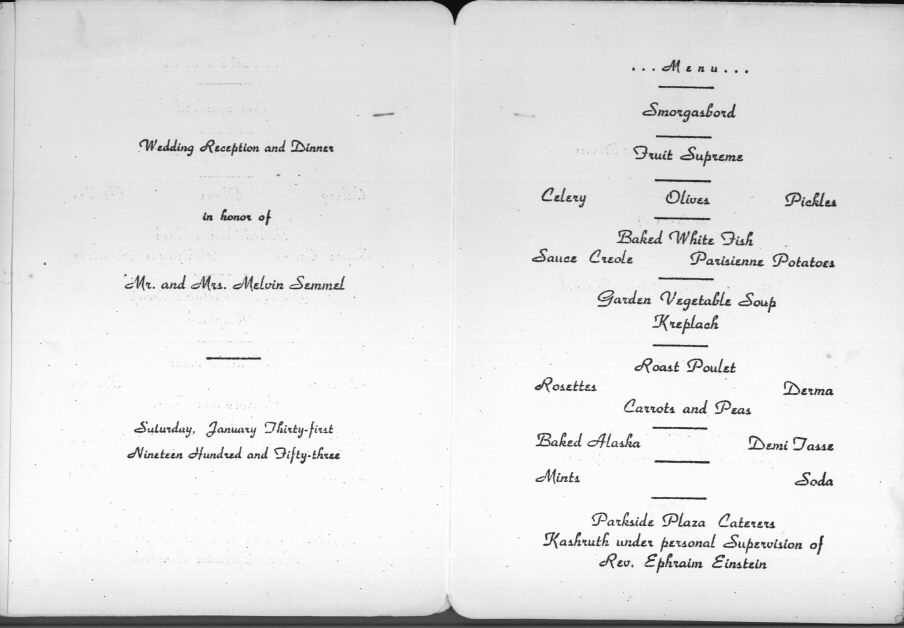 Wedding Reception and Dinner
in honor of
Mr. and Mrs. Melvin Semmel
Saturday, January Thirty-first
Nineteen Hundred and Fifty-three
...Menu...
Smorgasbord
Fruit Supreme
Celery Olives Pickles
Baked White Fish
Sauce Creole Parisienne Potatoes
Garden Vegetable Soup
Kreplach
Roast Poulet
Rosettes Derma
Carrots and Peas
Baked Alaska Demi Tasse
Mints Soda
Parkside Plaza Caterers
Kashruth under personal Supervision of
Rev. Ephraim Einstein